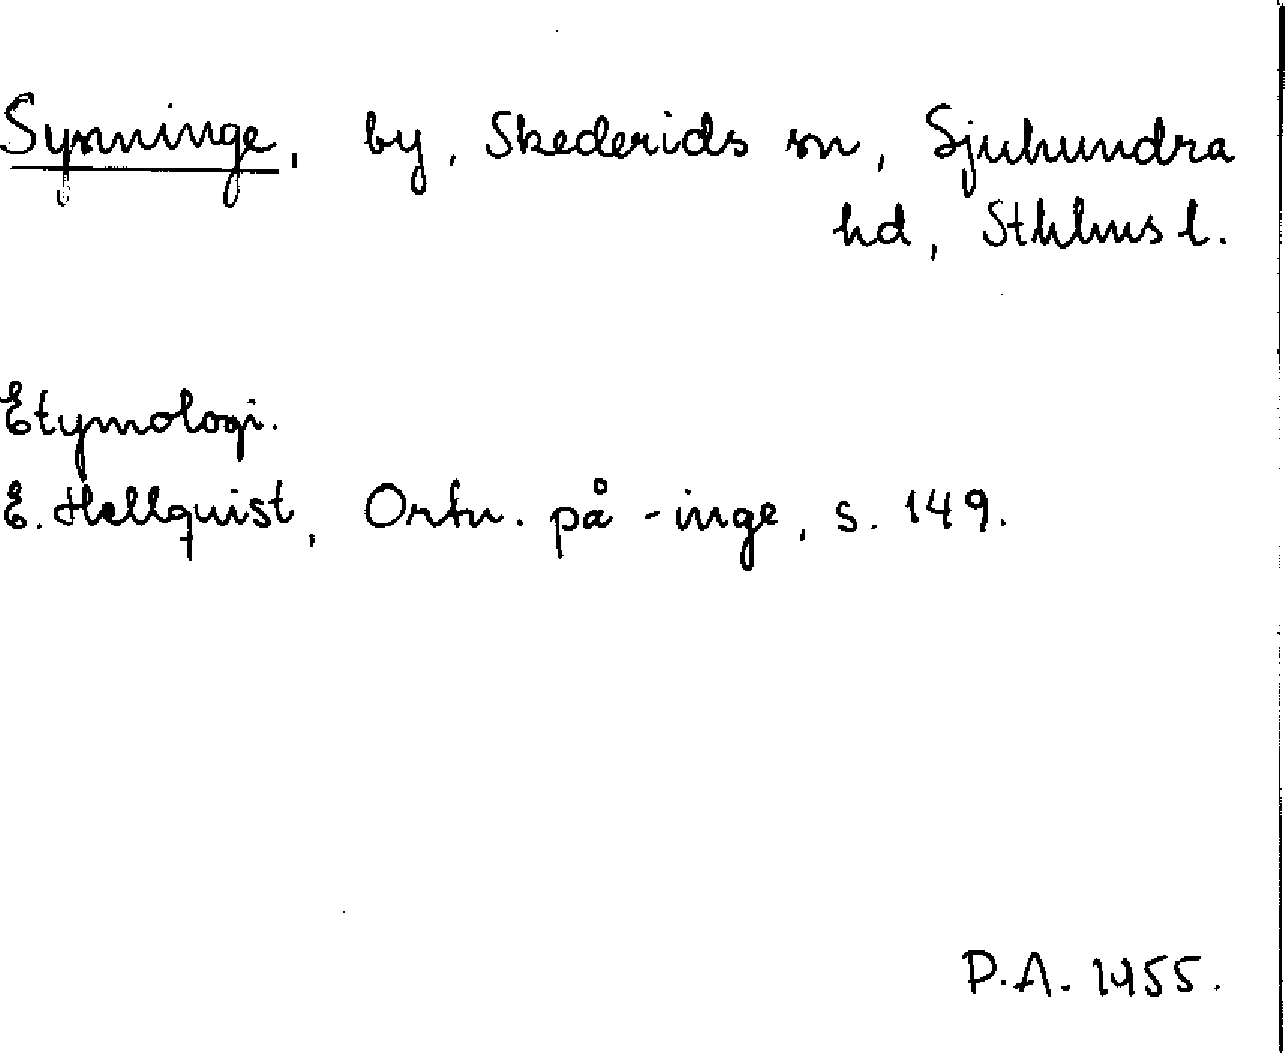 Synninge, by, Skederids sn, Sjuhundra
hd, Sthlms l.
Etymologi.
E. Hellquist, Ortn. på -inge, s. 149.
P.A. 1955.